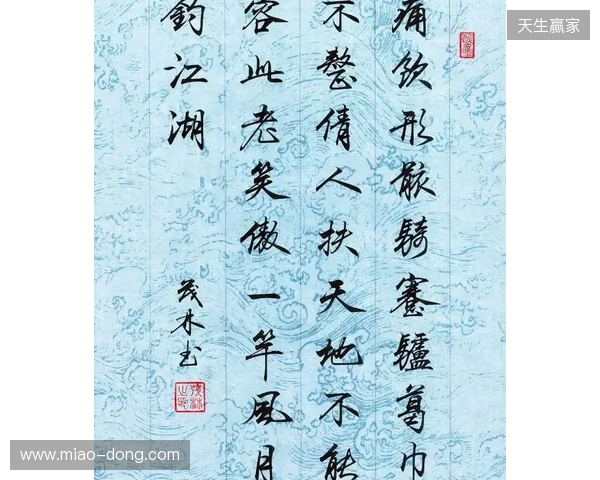 天生赢家
痛飲形骸騎蹇驢葛巾
不整倩人扶天地不能
容此老笑傲一竿風月
釣江湖
茂林书
www.miao-dong.com